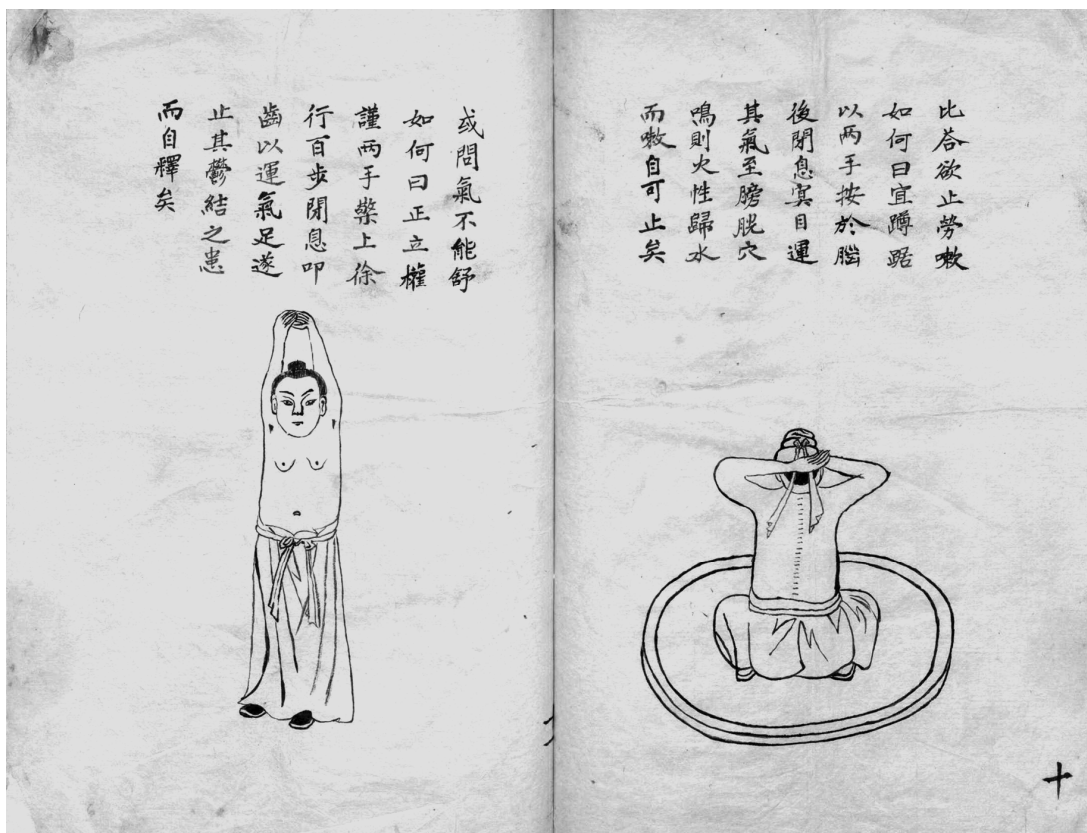 比荅欲止勞嗽
如何曰宜蹲踞
以两手按於腦
後閉息㝠目運
其氣至膀胱穴
鳴則火性歸水
而嗽自可止矣
十
或問氣不能舒
如何曰正立權
謹两手檠上徐
行百步閉息叩
齒以運氣足遂
止其鬱結之患
而自釋矣